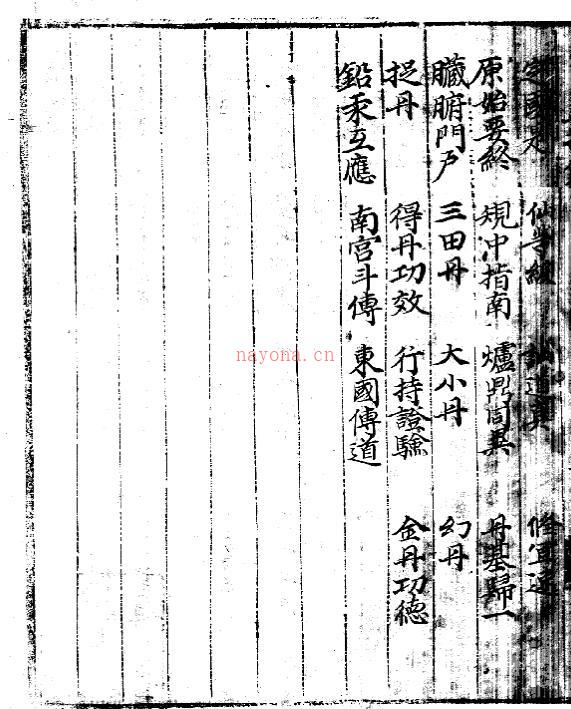 原始要終 規中指南 爐鼎同異 丹基歸一
臟腑門戶 三田丹 大小丹 幻丹
捉丹 得丹功效 行持證驗 金丹功德
鉛汞互應 南宮斗傳 東國傳道
nayona.cn